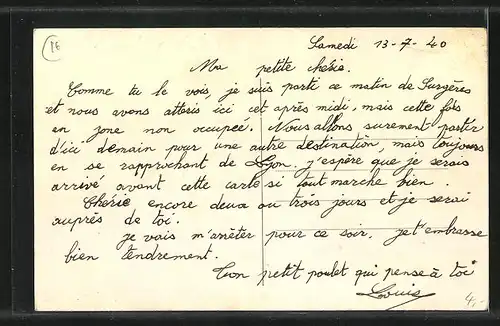 PE
Samedi 13-7-40
Ma petite chérie.
Comme tu le vois, je suis parti ce matin de Surgères
et nous avons atteris ici cet après midi, mais cette fois
en zone non occupeé. Nous allons surement partir
d'ici demain pour une autre destination, mais toujours
en se rapprochant de Lyon. j'espère que je serais
arrivé avant cette carte si tout marche bien.
Chérie encore deux ou trois jours et je serai
auprès de toi.
je vais m'arrêter pour ce soir. je t'embrasse
bien tendrement.
Ton petit poulet qui pense à toi
Louis
4,-